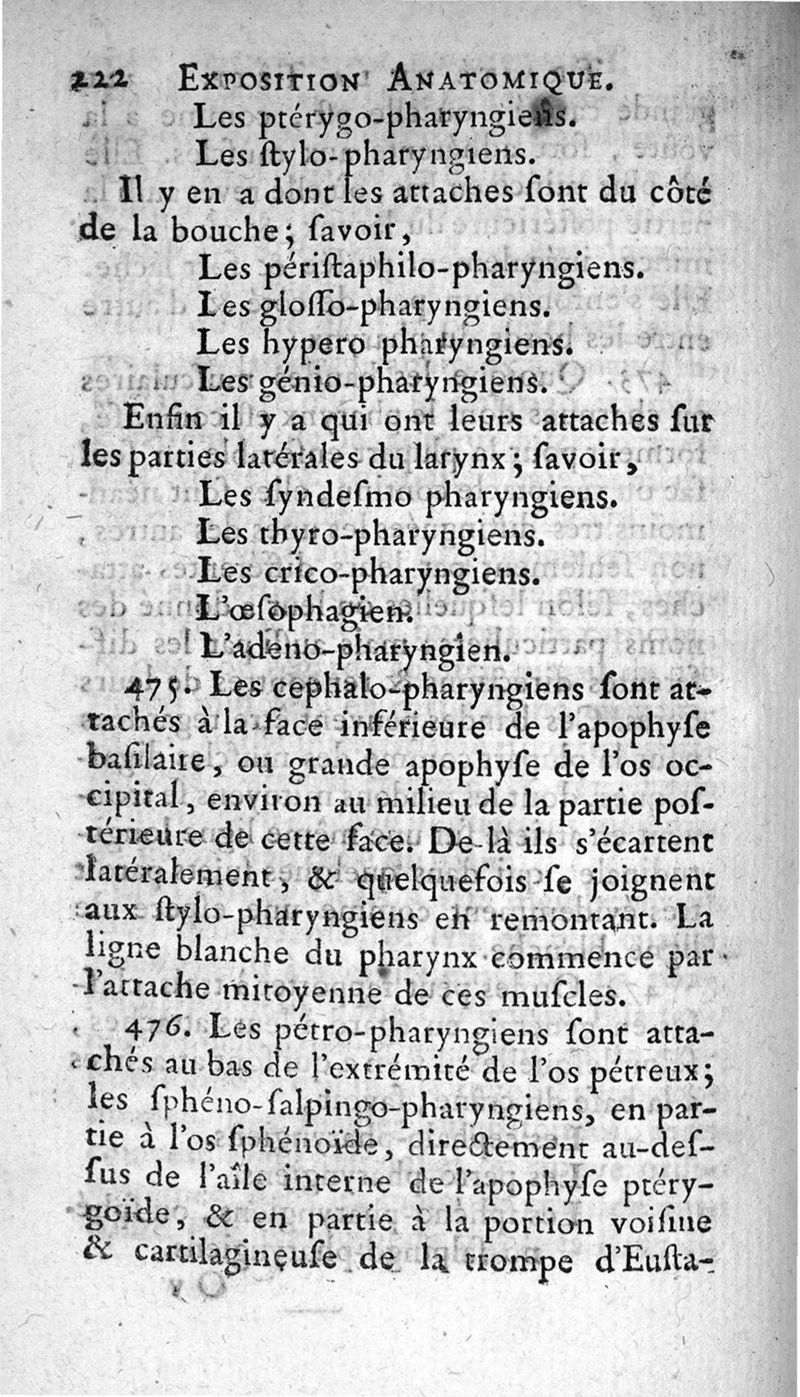 222 EXPOSITION ANATOMIQUE.
Les ptérygo-pharyngiens.
Les ſtylo-pharyngiens.
Il y en a dont les attaches ſont du côté
de la bouche; ſavoir,
Les périſtaphilo-pharyngiens.
Les gloſſo-pharyngiens.
Les hypero pharyngiens.
Les génio-pharyngiens.
Enfin il y a qui ont leurs attaches ſur
les parties latérales du larynx; ſavoir,
Les ſyndeſmo pharyngiens.
Les thyro-pharyngiens.
Les crico-pharyngiens.
L'œſophagien.
L'adéno-pharyngien.
475. Les cephalo-pharyngiens ſont at-
tachés à la face inférieure de l'apophyſe
baſilaire, ou grande apophyſe de l'os oc-
cipital, environ au milieu de la partie poſ-
térieure de cette face. De-là ils s'écartent
latéralement, & quelquefois ſe joignent
aux ſtylo-pharyngiens en remontant. La
ligne blanche du pharynx commence par
l'attache mitoyenne de ces muſcles.
476. Les pétro-pharyngiens ſont atta-
chés au bas de l'extrémité de l'os pétreux;
les ſphéno-ſalpingo-pharyngiens, en par-
tie à l'os ſphénoïde, directement au-deſ-
ſus de l'aîle interne de l'apophyſe ptéry-
goïde, & en partie à la portion voiſine
& cartilagineuſe de la trompe d'Euſta-